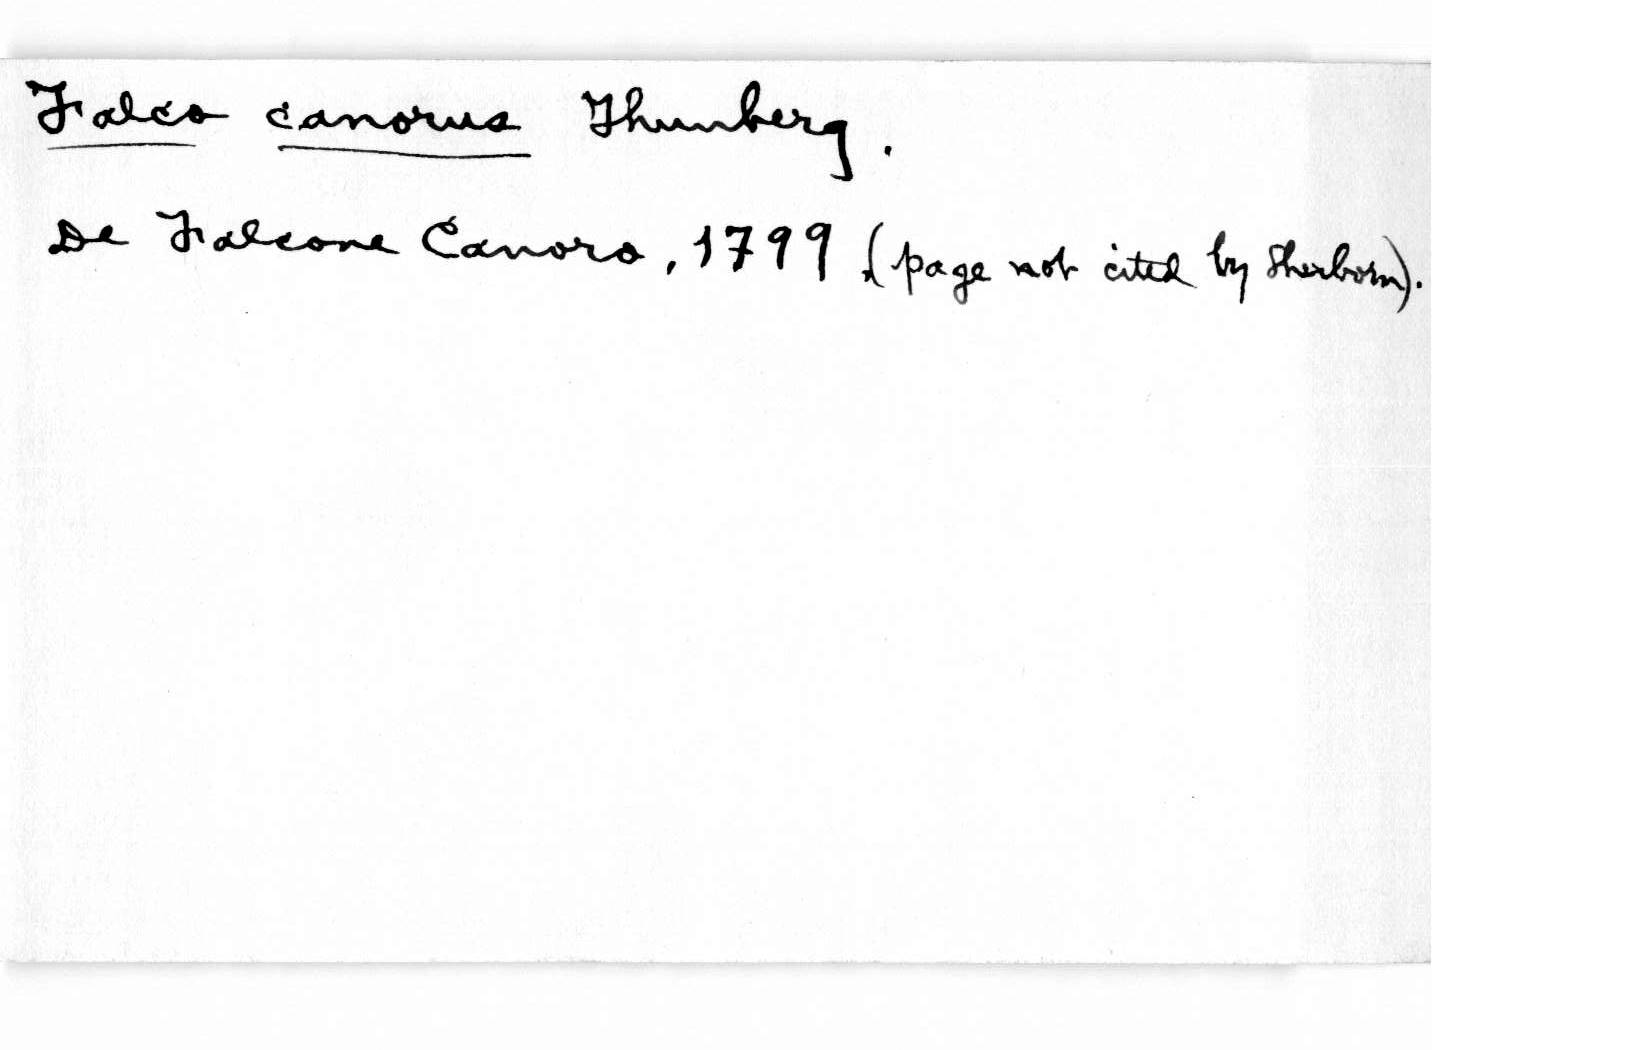 Falco canorus Thunberg.
De Falcone Canoro, 1799 (page not cited by Sherborn).